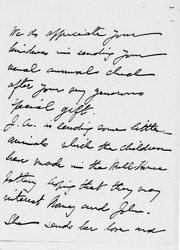 We do appreciate your
kindness in sending your
usual animals cheque
after your very generous
special gift.
J. is sending some little
animals which the children
have made in the
pottery hoping that they may
interest Nancy and John.
She sends her love and